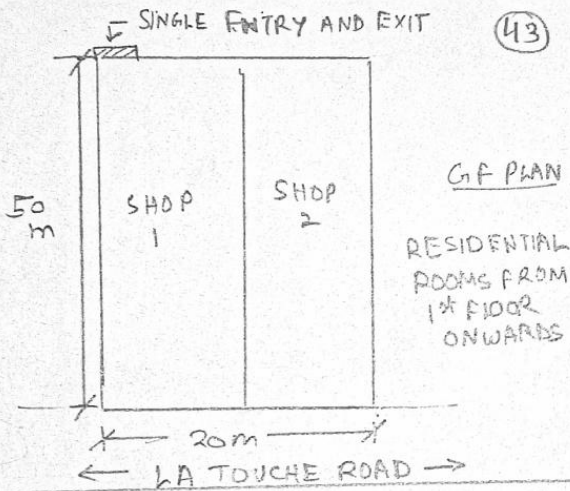 SINGLE ENTRY AND EXIT
43
50
m
SHOP
1
SHOP
2
GF PLAN
RESIDENTIAL
ROOMS FROM
1st FLOOR
ONWARDS
20m
LA TOUCHE ROAD